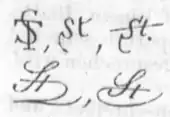 ST, St, St.
St, St